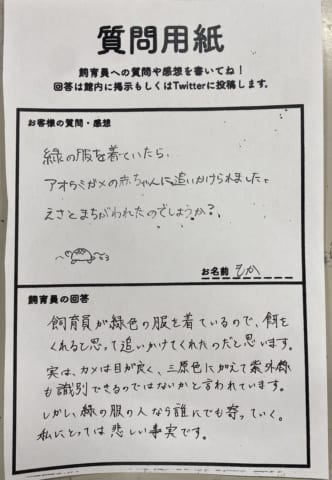 質問用紙
飼育員への質問や感想を書いてね！
回答は館内に掲示もしくはTwitterに投稿します。
お客様の質問・感想
緑の服を着ていたら、
アオウミガメの赤ちゃんに追いかけられました。
えさとまちがわれたのでしょうか？
お名前 もか
飼育員の回答
飼育員が緑色の服を着ているので、餌を
くれると思って追いかけてくれたのだと思います。
実は、カメは目が良く、三原色にくわえて紫外線
も識別できるのではないかと言われています。
しかし、緑の服の人なら誰にでも寄っていく。
私にとっては悲しい事実です。